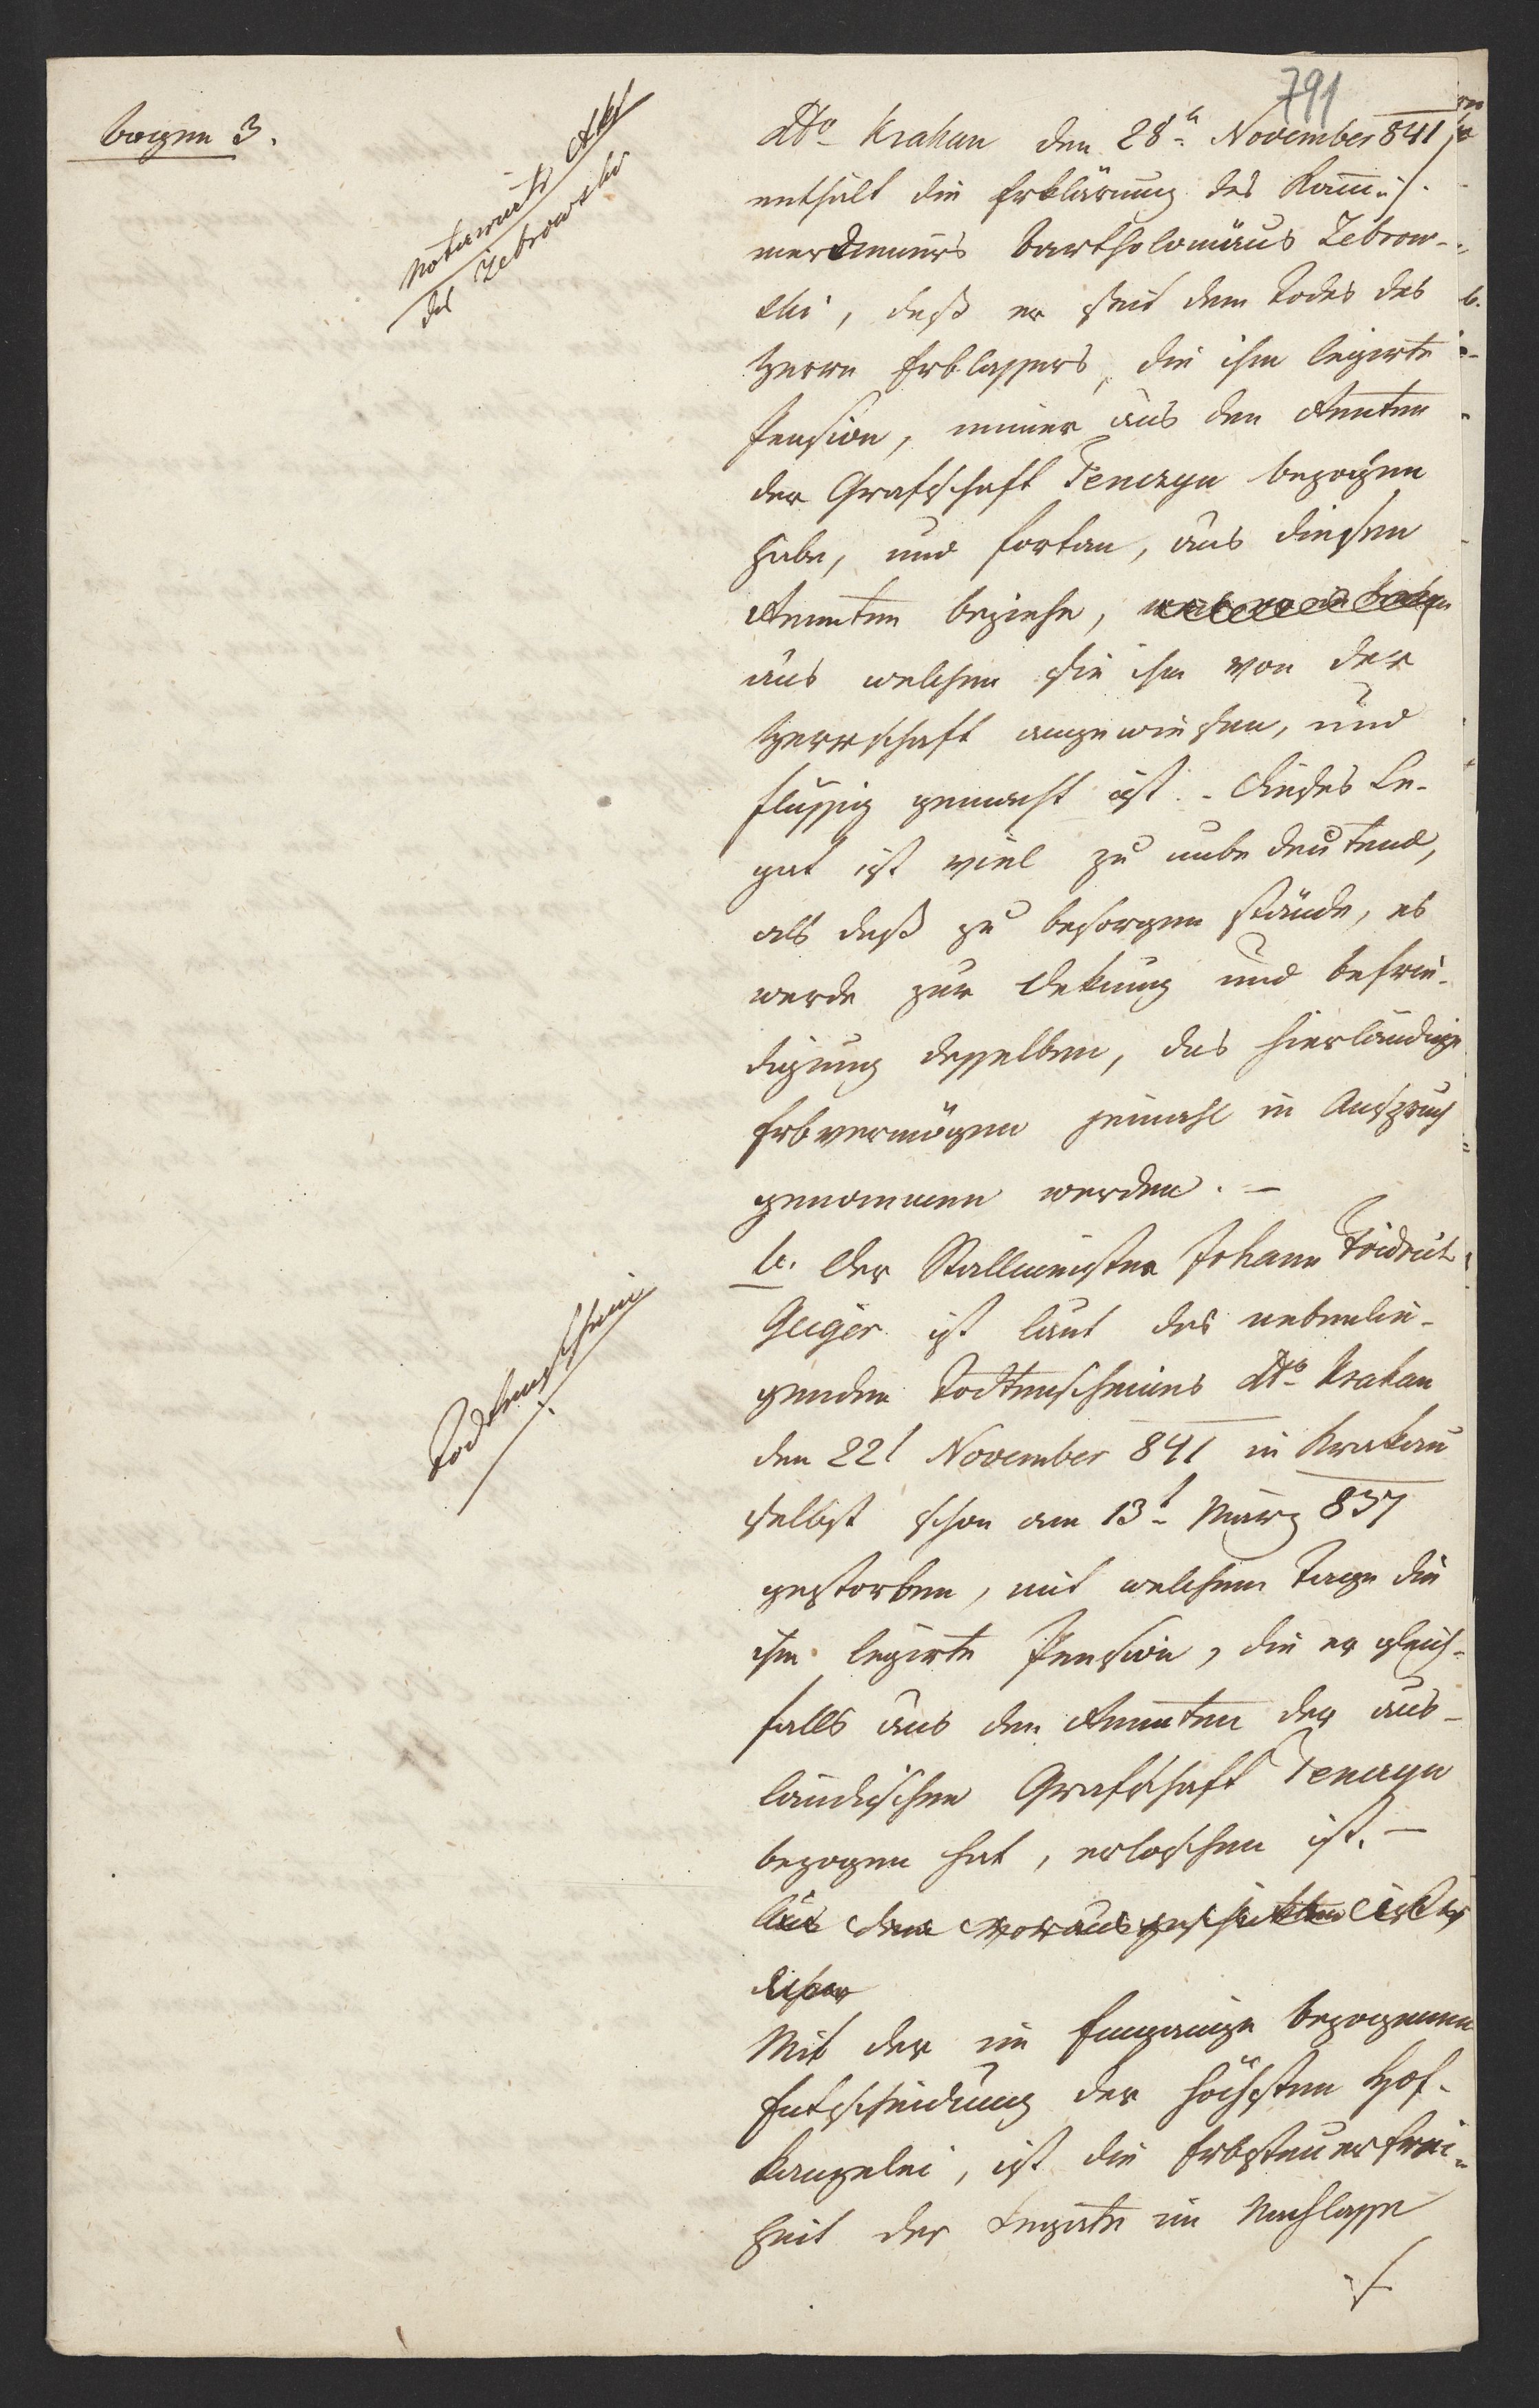 791
bogen 3.
Notariats Akt
des Zebrowski
dtto Krakau den 28tn November 841
enthält die Erklärung des Kam¬
merdieners Bartholomäus Zebrow-
ski, daß er seit dem Todes des
Herrn Erblassers, die ihm legirte
Pension, immer aus den Renten
der Grafschaft Tenczyn bezogen
habe, und fortan, aus diesen
Renten beziehe,
aus welchen sie ihm von der
Herrschaft angewiesen, und
flüssig gemacht ist. - Dieses Le-
gat ist viel zu unbedeutend,
als daß zu besorgen stände, es
werde zur Dekung und befrie-
digung desselben, das hierländige
Erbvermögen jemahl in Anspruch
genommen werden. -
Todtenschein
b. Der Stallmeister Johann Fridrich
Geiger ist laut des nebenlie-
genden Todtenscheines dtto Krakau
den 22t November 841 in Krakau
selbst schon am 13t März 837
gestorben, mit welchem Tage die
ihm legirte Pension, die er gleich-
falls aus den Renten der aus-
ländischen Grafschaft Tenczyn
bezogen hat, erloschen ist. -
Aus dem vorausgeschickten ist es
Mit der im Eingange bezogenen
Entscheidung der höchsten Hof-
kanzelei, ist die Erbsteuerfrei-
heit der Legate im Nachlasse
./.